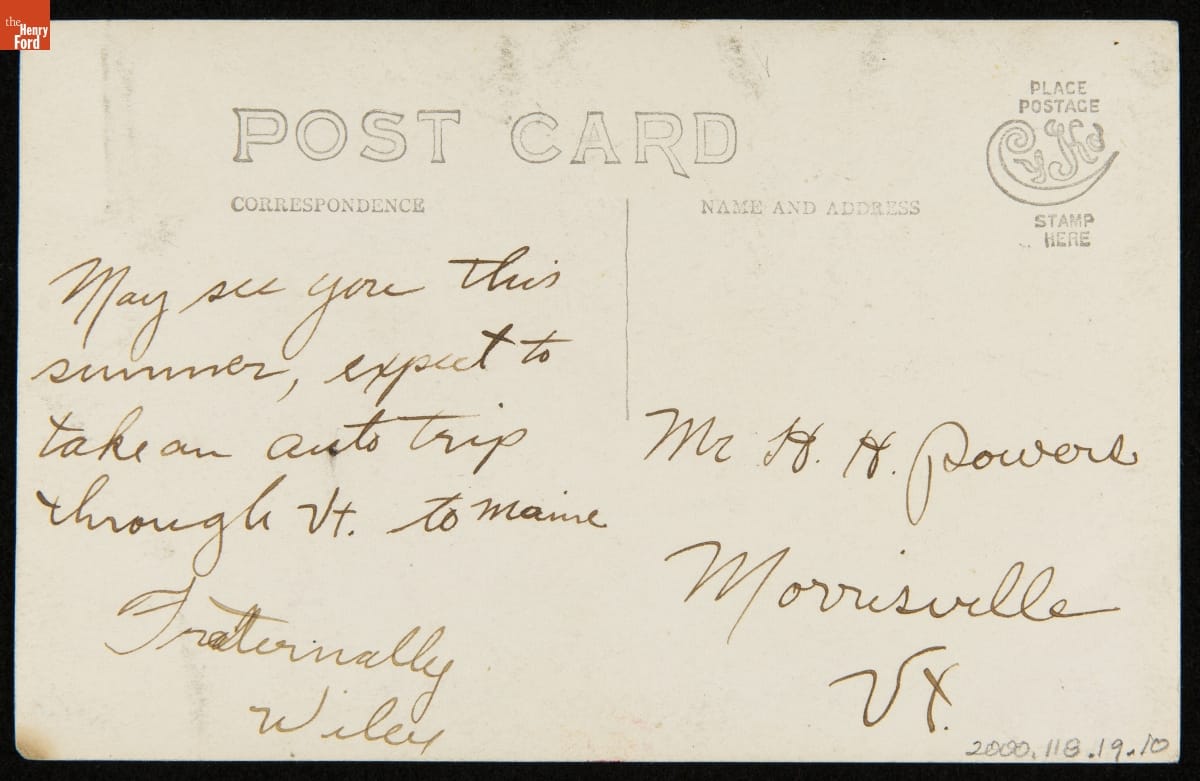 the
Henry
Ford
POST CARD
PLACE
POSTAGE
CyKo
STAMP
HERE
CORRESPONDENCE
NAME AND ADDRESS
May see you this
summer, expect to
take an auto trip
through Vt. to Maine
Fraternally
Wiley
Mr. H. H. Powers
Morrisville
Vt.
2000.118.19.10